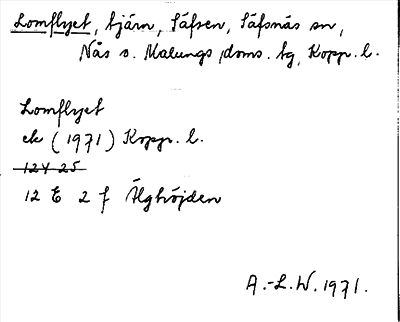 Lomflyet, tjärn, Säfsen, Säfsnäs sn,
Nås o. Malungs doms. tg, Kopp. l.
Lomflyet
ek (1971) Kopp. l.
12 Y 25
12 E 2 f Älghöjden
A.-L.W. 1971.